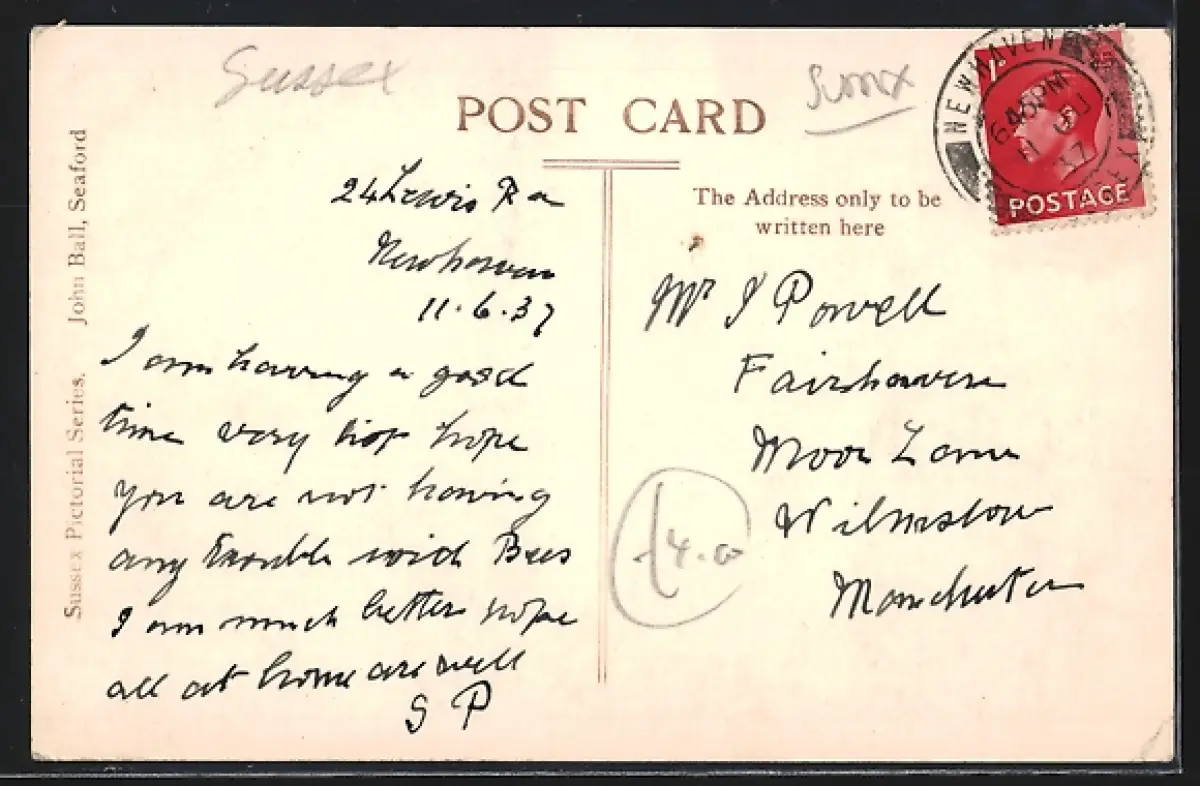 Sussex
POST CARD
Sussex
NEWHAVEN
6 45 PM
11 JU
37
SUSSEX
1D
POSTAGE
Sussex Pictorial Series. John Ball, Seaford
The Address only to be
written here
24 Lewis Rd
Newhaven
11.6.37
I am having a good
time very hot hope
you are not having
any trouble with Bees
I am much better hope
all at home are well
S P
Mr J Powell
Fairhaven
Moor Lane
Wilmslow
Manchester
£4.00